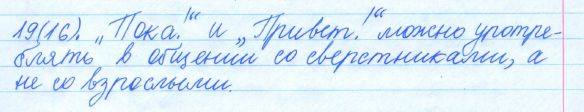 19(16). „Пока!“ и „Привет!“ можно употре-
блять в общении со сверстниками, а
не со взрослыми.